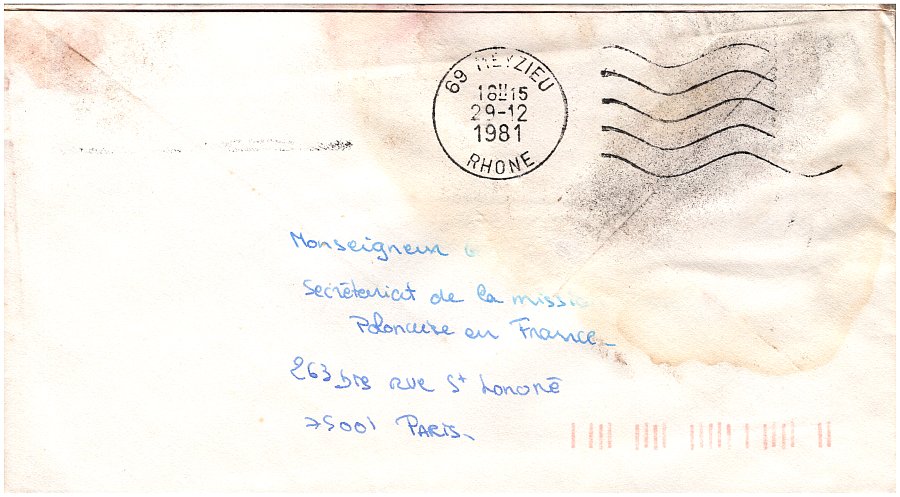 69 MEYZIEU
18H15
29-12
1981
RHONE
Monseigneur
Secrétariat de la mission
Polonaise en France
263 bis rue St honoré
75001 PARIS